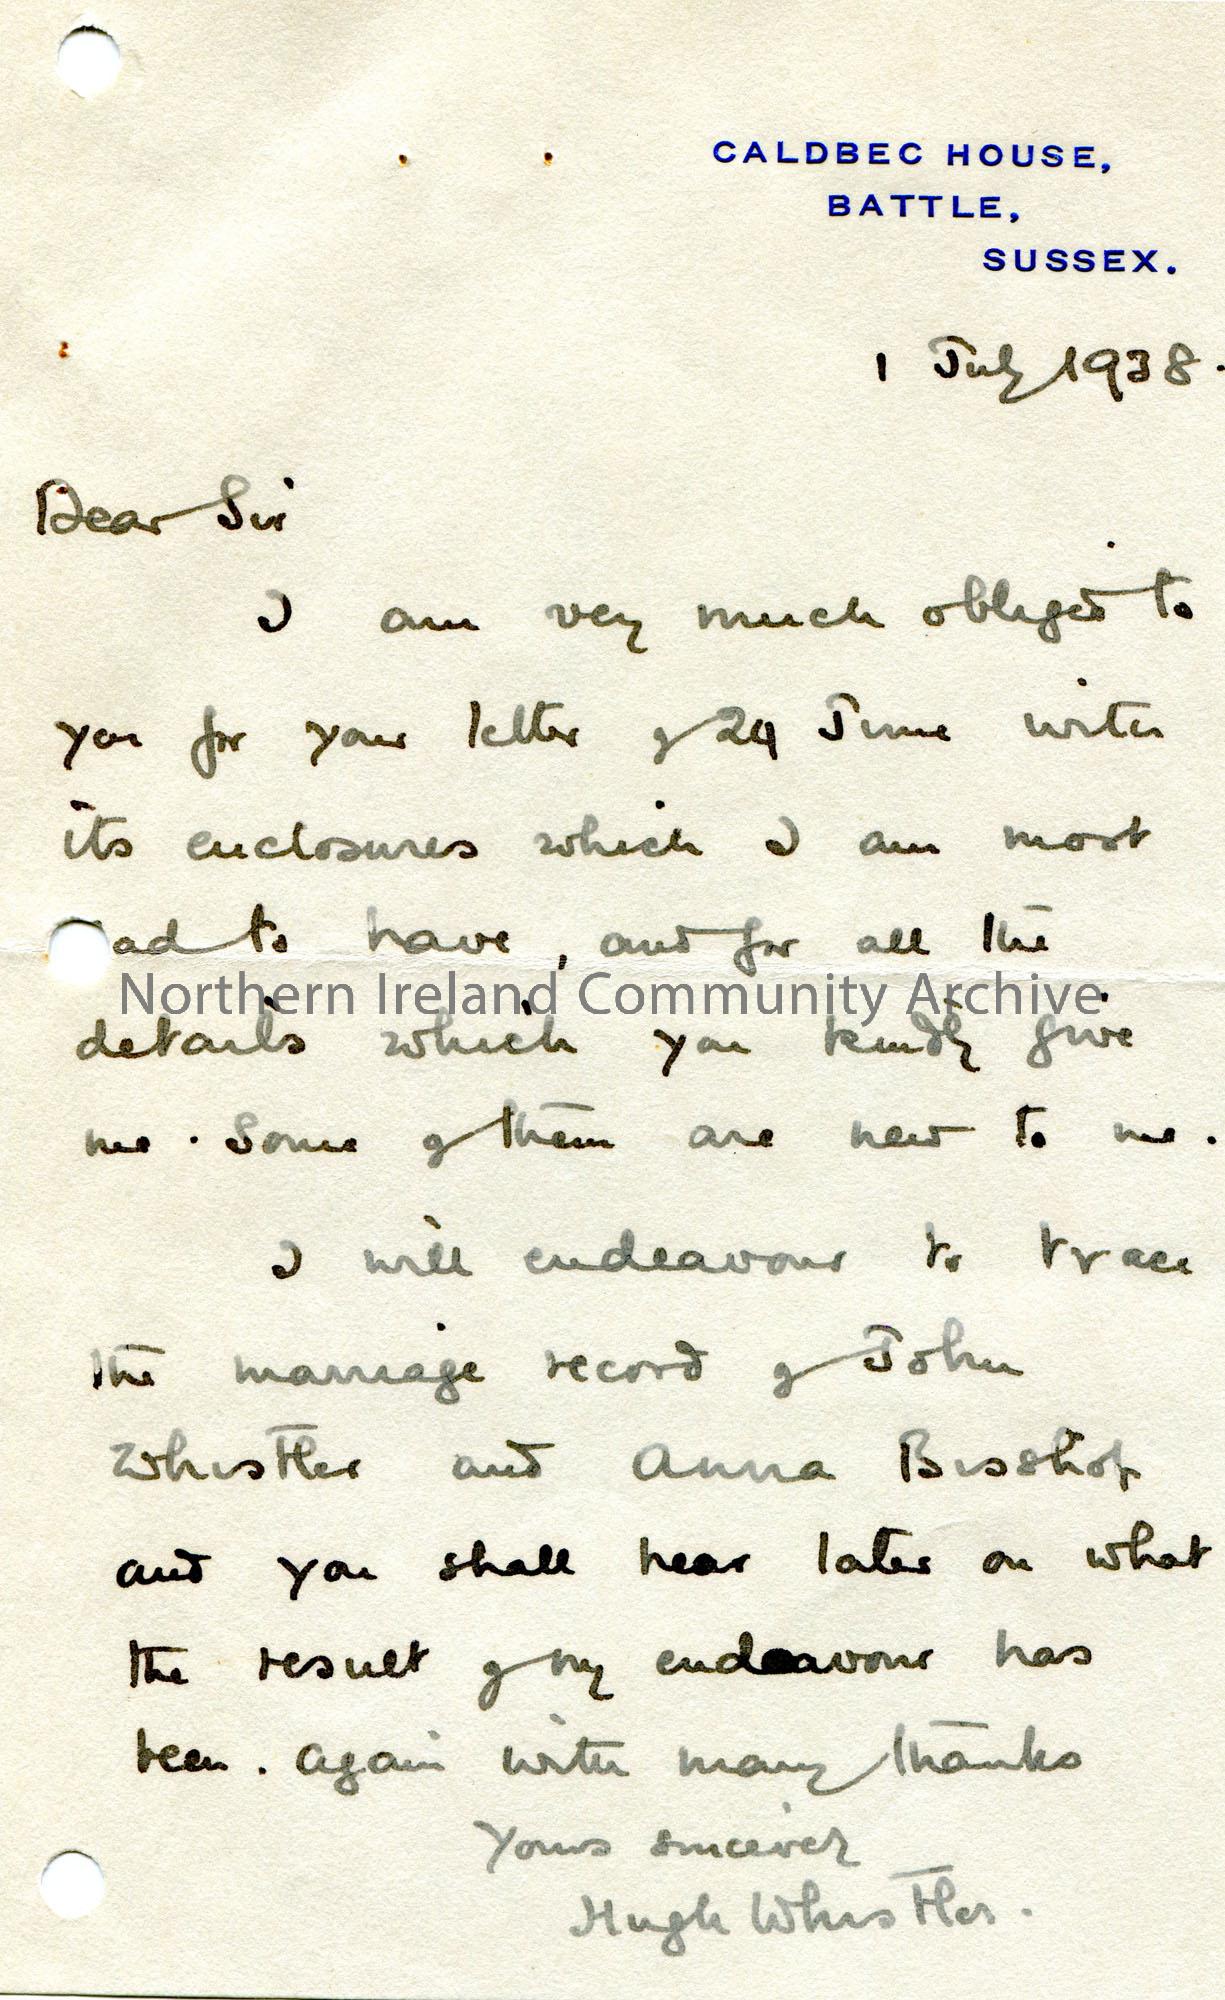 CALDBEC HOUSE,
BATTLE,
SUSSEX.
1 July 1938.
Dear Sir
I am very much obliged to
you for your letter of 24 June with
its enclosures which I am most
ad to have, and for all the
Northern Ireland Community Archive
details which you kindly give
me. Some of them are new to me.
I will endeavour to trace
the marriage record of John
Whistler and Anna Bisshop
and you shall hear later on what
the result of my endeavour has
been. Again with many thanks
Yours sincerely
Hugh Whistler.